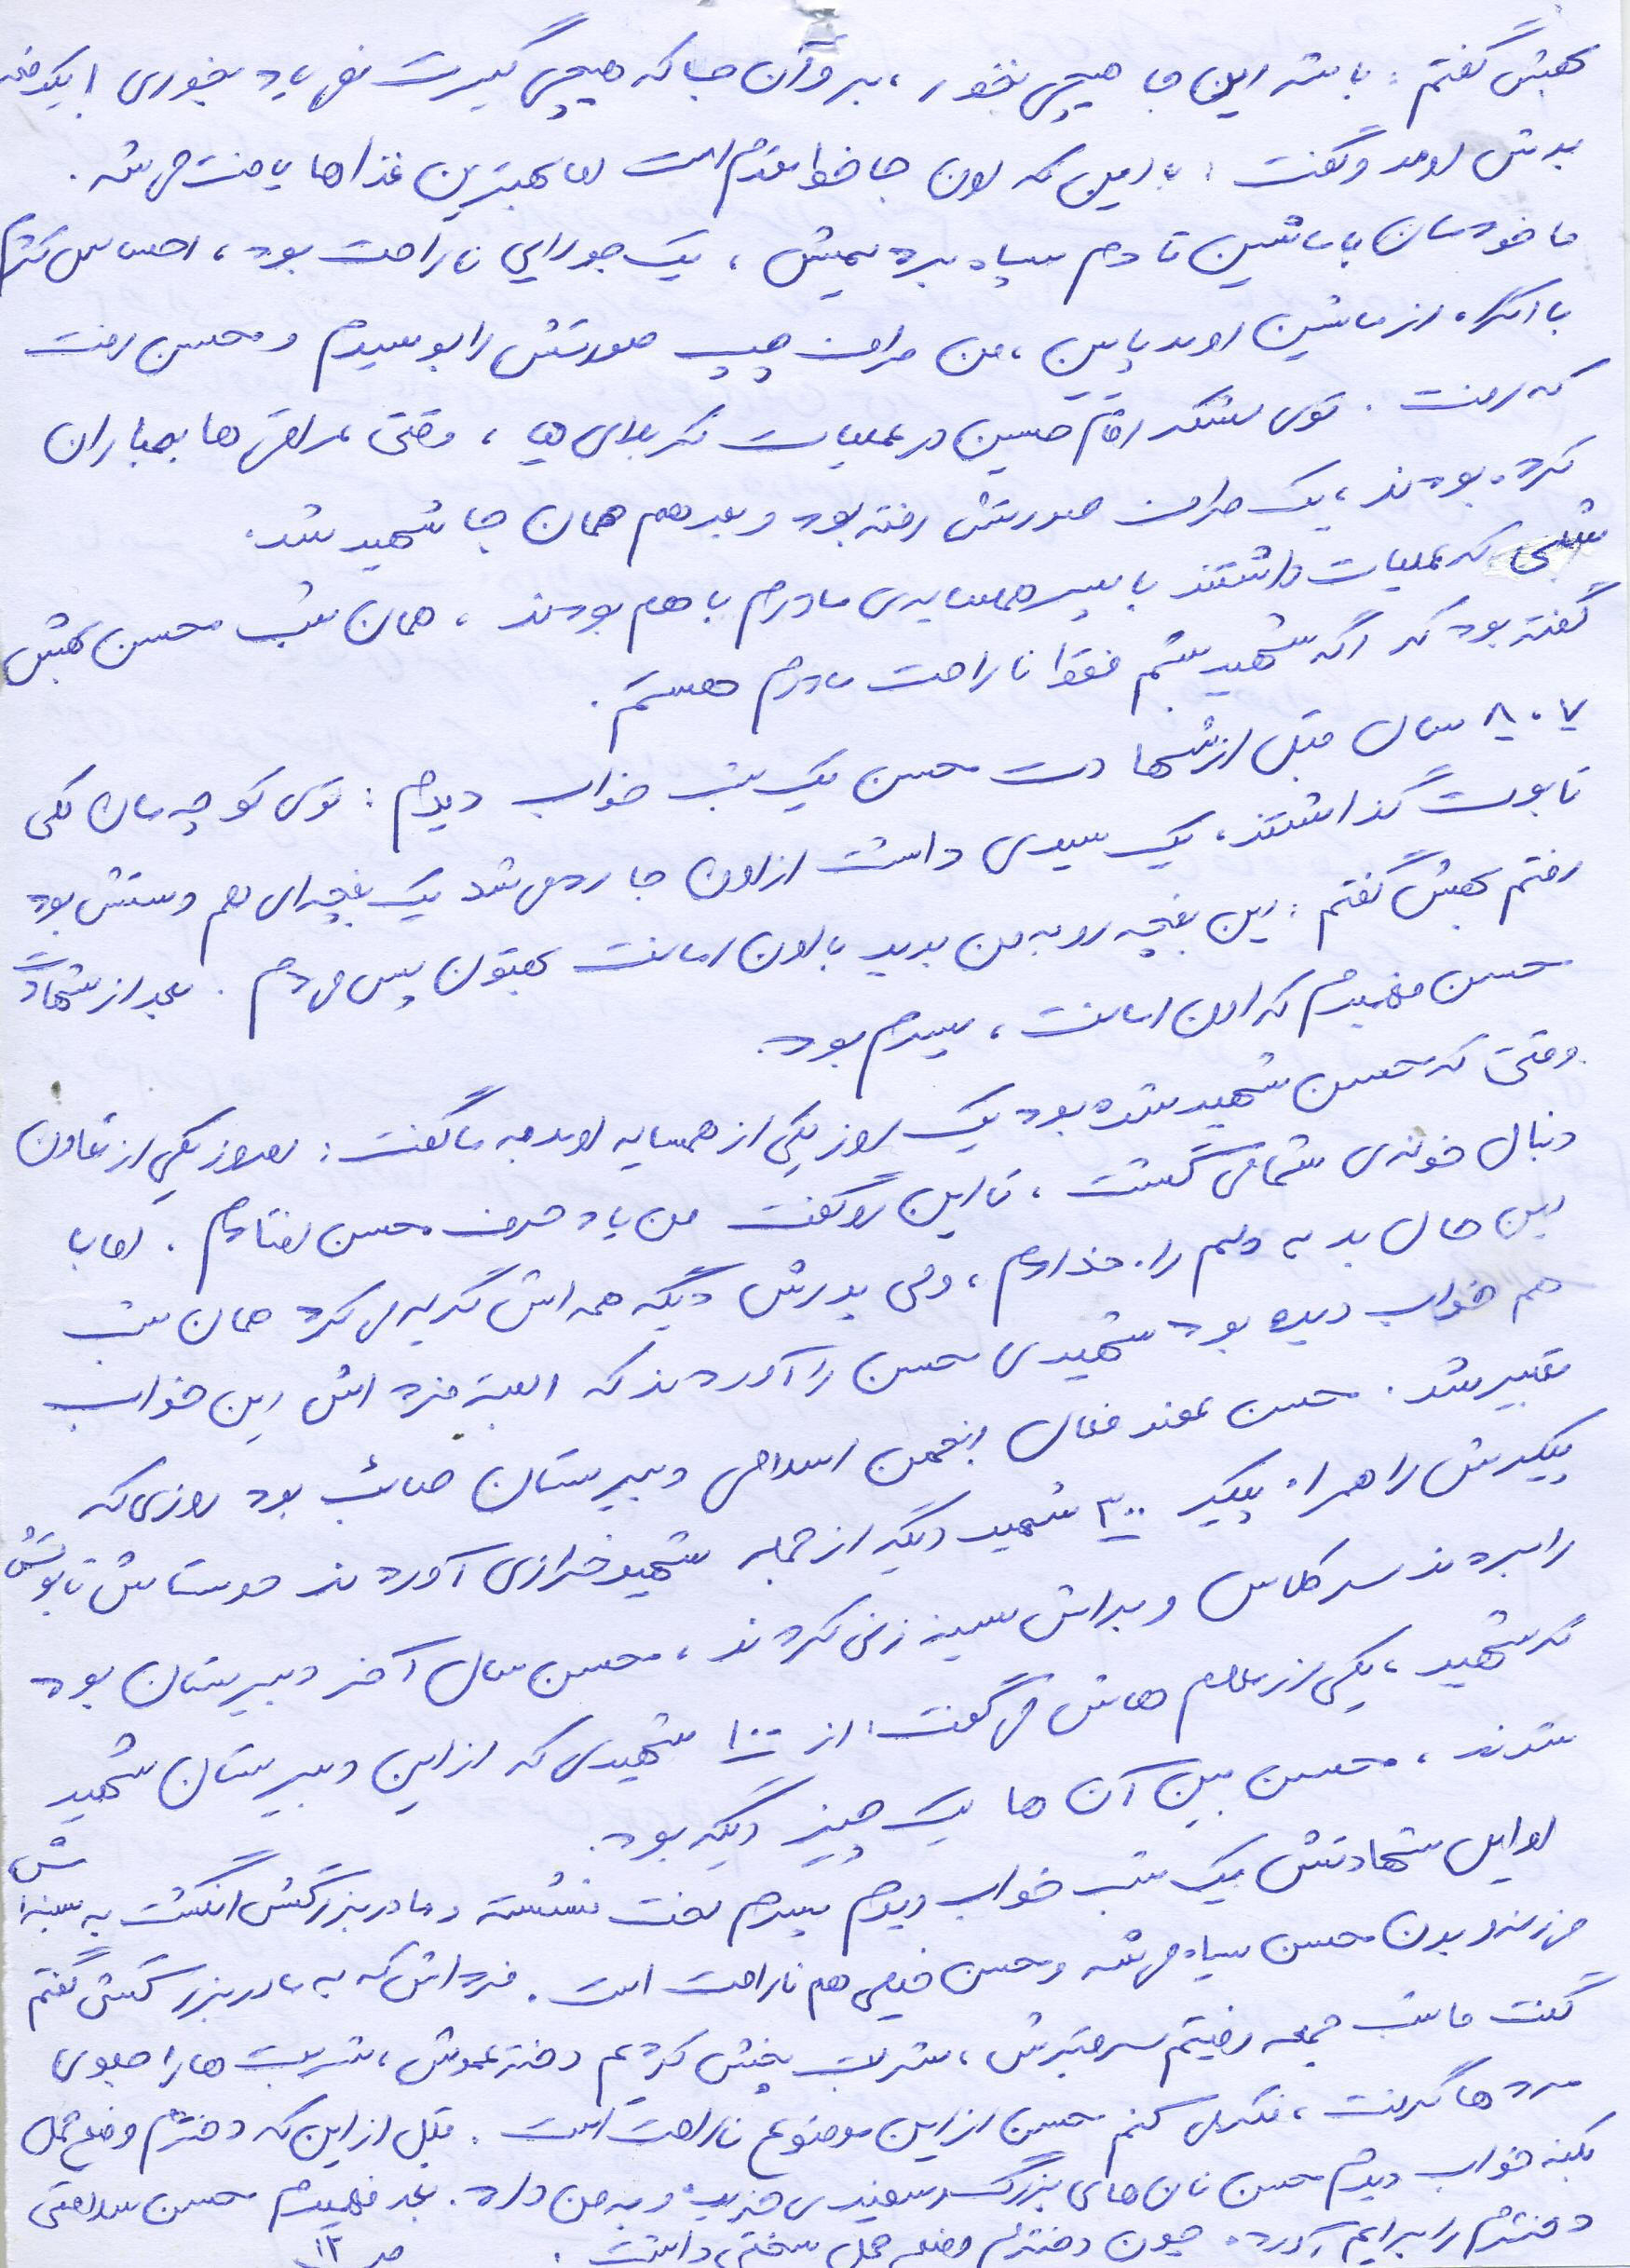 بهش گفتم: باشه این جا هیچی نخور، برو آن جا که هیچی گیرت نمی یاد بخوری! یکدفعه
بدش اومد و گفت: با این که اون جا خط مقدم است اما بهترین غذاها یافت می شه.
ما خودمان با ماشین تا دم سپاه بردیمش، یک جورایی ناراحت بود، احساس کردم
با اکراه از ماشین اومد پایین، من طرف چپ صورتش را بوسیدم و محسن رفت
که رفت. توی لشکر امام حسین در عملیات کربلای ۵، وقتی عراقی ها بمباران
کرده بودند، یک طرف صورتش رفته بود و بعد هم همان جا شهید شد.
شبی که عملیات داشتند با پسر همسایه ی مادرم با هم بودند، همان شب محسن بهش
گفته بود که اگه شهید بشم فقط ناراحت مادرم هستم.
۷، ۸ سال قبل از شهادت محسن یک شب خواب دیدم: توی کوچه مان یکی
تابوت گذاشتند، یک سیدی داشت از اون جا رد می شد یک بغچه ای هم دستش بود
رفتم بهش گفتم: این بغچه رو به من بدید با اون امانت بهتون پس می دم. بعد از شهادت
محسن فهمیدم که اون امانت، پسرم بود.
وقتی که محسن شهید شده بود یک روز یکی از همسایه اومد به ما گفت: امروز یکی از تعاون
دنبال خونه ی شما می گشت، تا این رو گفت من یاد حرف محسن افتادم. اما با
این حال بد به دلم راه ندادم، ولی پدرش دیگه همه اش گریه می کرد همان شب
هم خواب دیده بود شهیدی محسن را آوردند که البته فرداش این خواب
تعبیر شد. محسن عضو فعال انجمن اسلامی دبیرستان صائب بود روزی که
پیکرش را همراه پیکر ۳۰۰ شهید دیگه از جمله شهید خرازی آوردند دوستاش تابوتش
را بردند سر کلاس و براش سینه زنی کردند، محسن سال آخر دبیرستان بود
که شهید، یکی از معلم هاش می گفت: از ۱۰۰ شهیدی که از این دبیرستان شهید
شدند، محسن بین آن ها یک چیز دیگه بود.
اوایل شهادتش یک شب خواب دیدم پسرم لخت نشسته و مادربزرگش انگشت به سینه اش
می زنه و بدن محسن سیاه می شه و محسن خیلی هم ناراحت است. فرداش که به مادربزرگش گفتم
گفت ما شب جمعه رفتیم سر قبرش، شربت پخش کردیم دختر عموش، شربت ها را جلوی
مردها گرفت، فکر می کنم محسن از این موضوع ناراحت است. قبل از این که دخترم وضع حمل
بکنه خواب دیدم محسن نان های بزرگ سفیدی خرید و به من داد. بعد فهمیدم محسن سلامتی
دخترم را برایم آورد، چون دخترم وضع حمل سختی داشت.
ص ۱۲